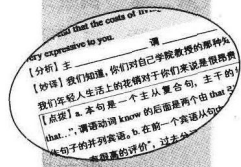 and that the costs of liv
very expressive to you.
【分析】主 谓
【妙译】我们知道,你们对自己学院教授的那种
我们年轻人生活上的花销对于你们来说是很昂贵
【点拨】a. 本句是一个主从复合句,主干的
that…",谓语动词 know 的后面是两个由 that
句子的并列宾语。b. 在前一个宾语从句
很高的评价",过去分